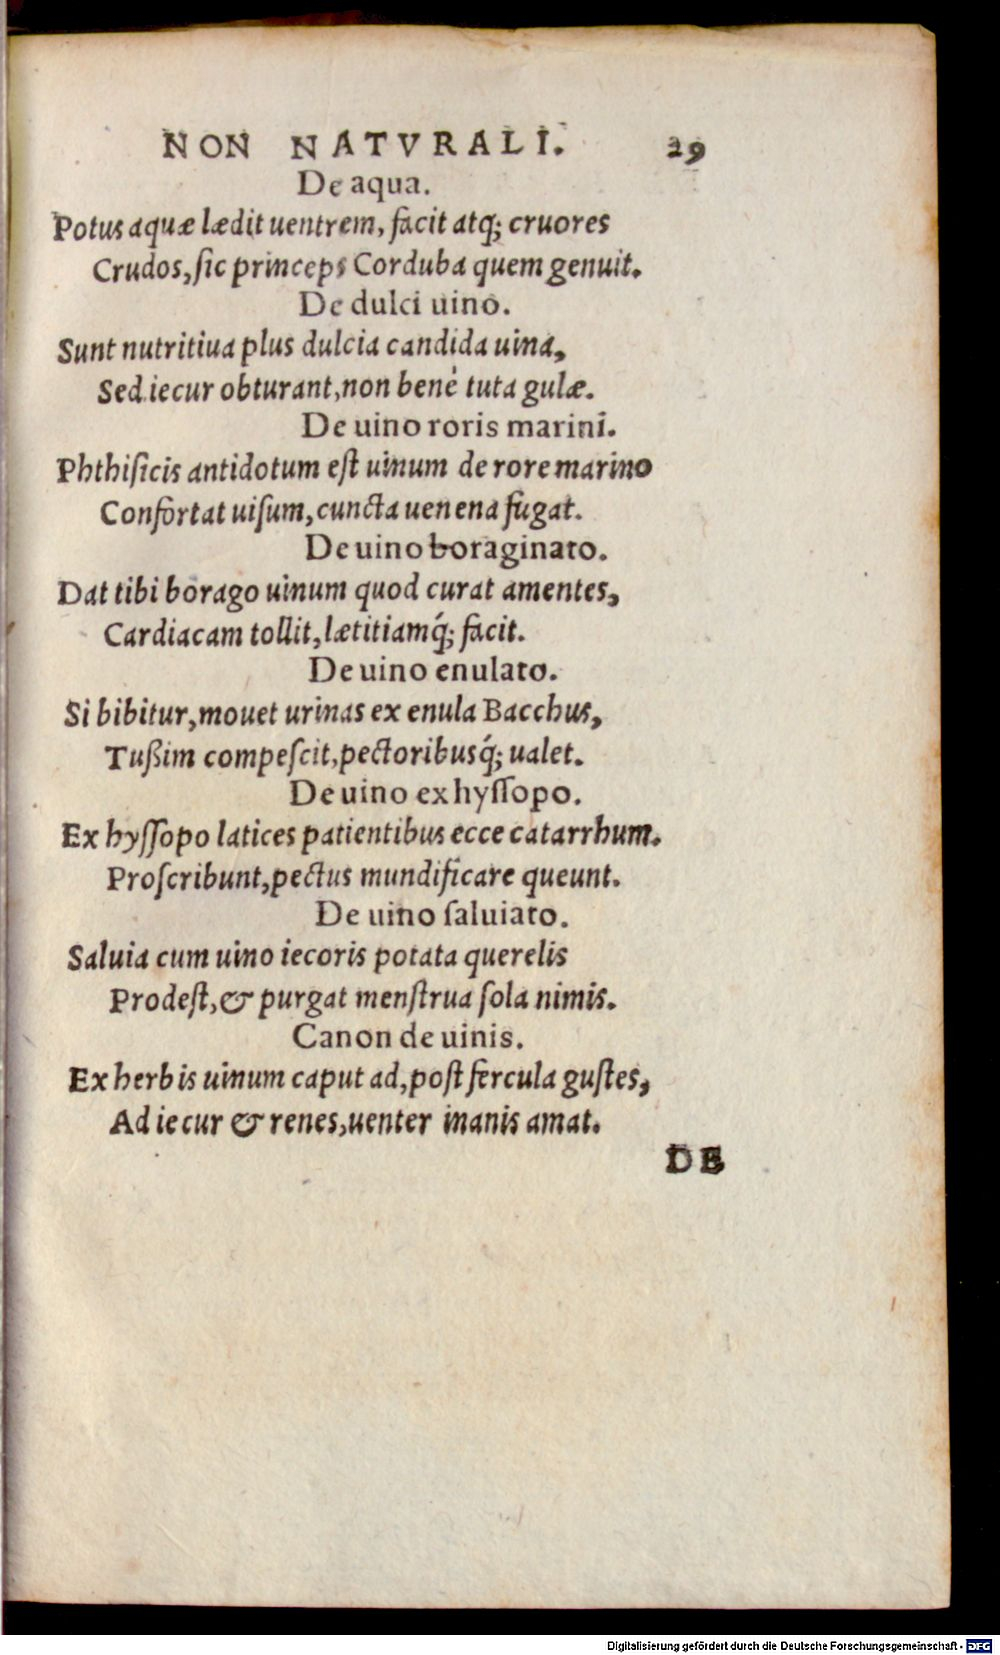 NON NATVRALI. 29
De aqua.
Potus aquæ lædit uentrem, facit atq; cruores
Crudos, ſic princeps Corduba quem genuit.
De dulci uino.
Sunt nutritiua plus dulcia candida uina,
Sed iecur obturant, non bené tuta gulæ.
De uino roris marini.
Phthiſicis antidotum eſt uinum de rore marino
Confortat uiſum, cuncta uenena fugat.
De uino boraginato.
Dat tibi borago uinum quod curat amentes,
Cardiacam tollit, lætitiamq́; facit.
De uino enulato.
Si bibitur, mouet urinas ex enula Bacchus,
Tußim compeſcit, pectoribusq́; ualet.
De uino ex hyſſopo.
Ex hyſſopo latices patientibus ecce catarrhum.
Proſcribunt, pectus mundificare queunt.
De uino ſaluiato.
Saluia cum uino iecoris potata querelis
Prodeſt, & purgat menſtrua ſola nimis.
Canon de uinis.
Ex herbis uinum caput ad, poſt fercula guſtes,
Ad iecur & renes, uenter inanis amat.
DE
Digitalisierung gefördert durch die Deutsche Forschungsgemeinschaft - DFG